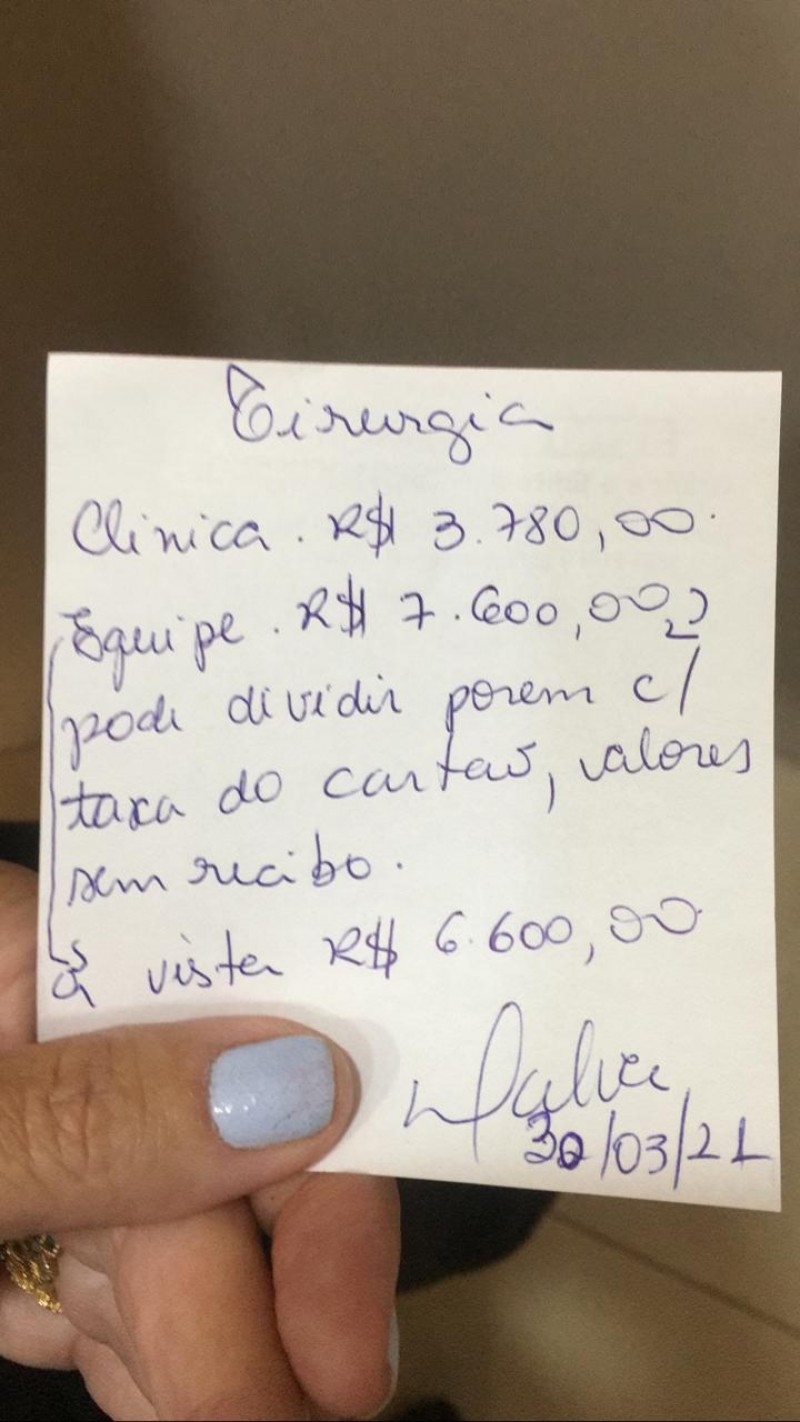 Cirurgia
Clinica. R$ 3.780,00.
Equipe. R$ 7.600,00
pode dividir porem c/
taxa do cartão, valores
sem recibo.
à vista R$ 6.600,00
30/03/21